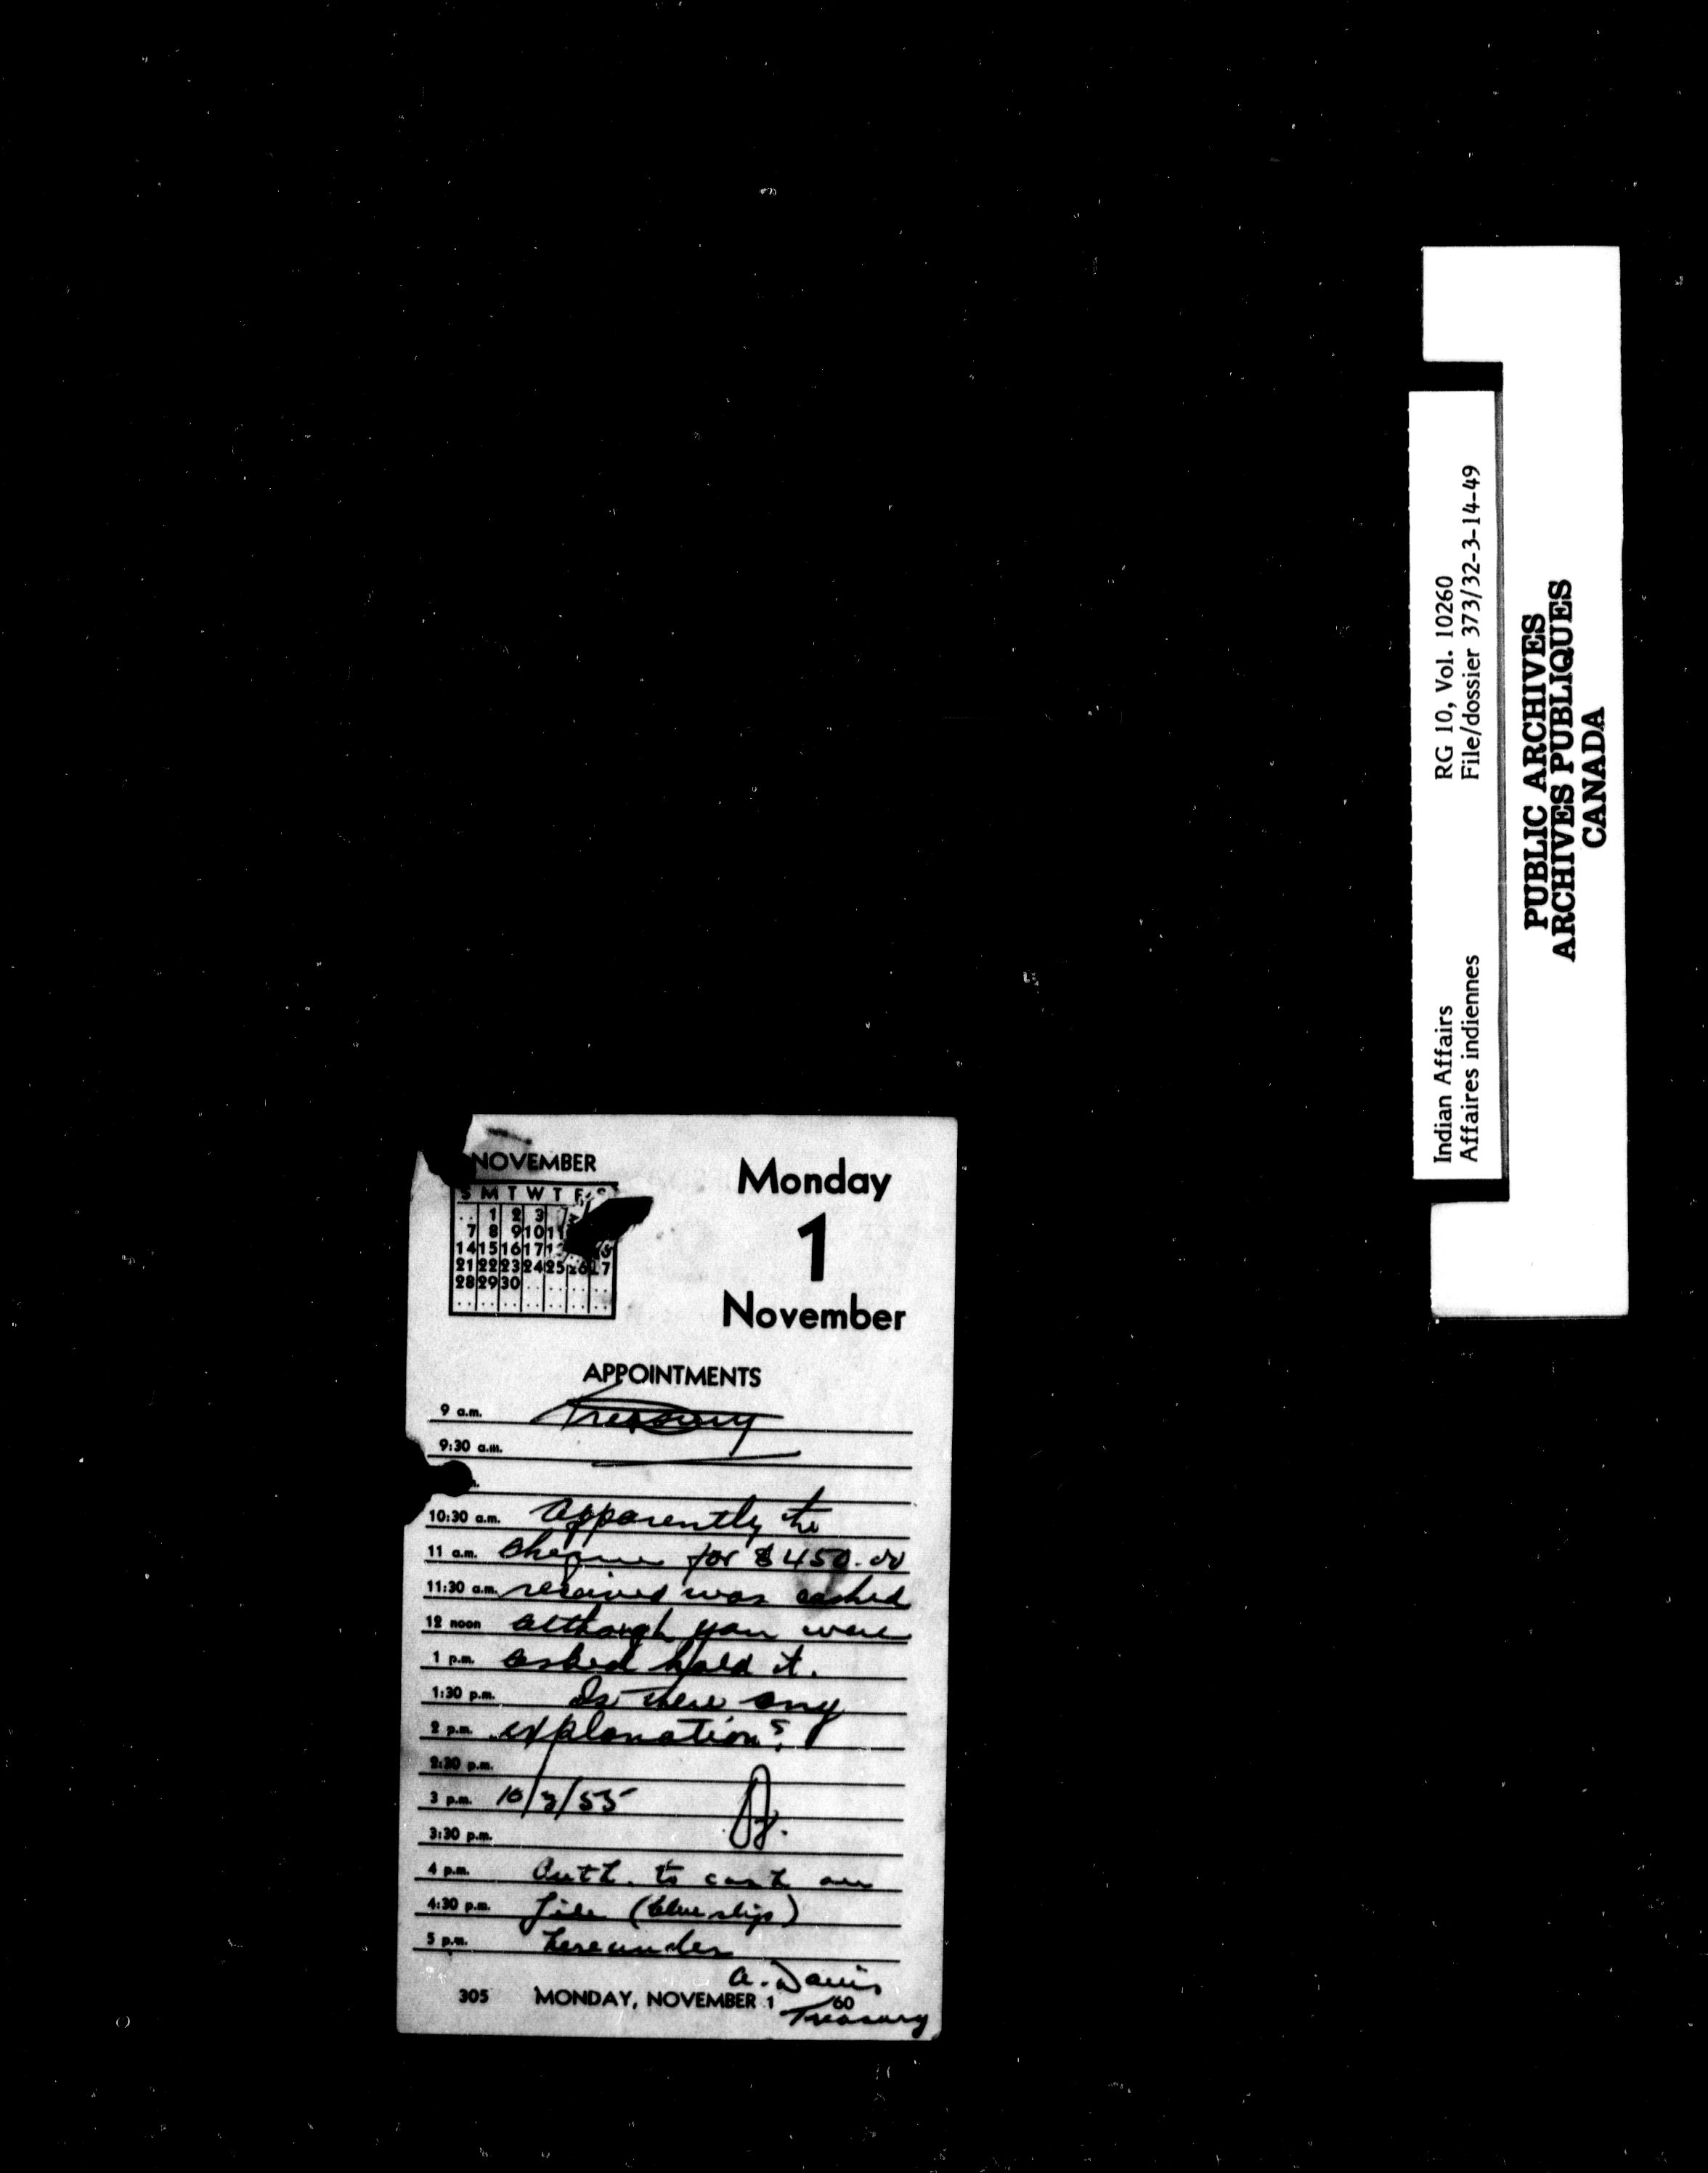 NOVEMBER
S M T W T F S
.. 1 2 3
7 8 9 10 11
14 15 16 17
21 22 23 24 25 26 27
28 29 30 .. .. .. ..
.. .. .. .. .. .. ..
Monday
1
November
APPOINTMENTS
9 a.m. Treasury
9:30 a.m.
10:30 a.m. Apparently the
11 a.m. cheque for $450.00
11:30 a.m. received was cashed
12 noon although you were
1 p.m. asked hold it.
1:30 p.m. Is there any
2 p.m. explanation?
2:30 p.m.
3 p.m. 10/3/55
3:30 p.m.
4 p.m. Auth. to cash on
4:30 p.m. file (blue slip)
5 p.m. hereunder
A. Davis
305 MONDAY, NOVEMBER 1 60
Treasury
Indian Affairs RG 10, Vol. 10260
Affaires indiennes File/dossier 373/32-3-14-49
PUBLIC ARCHIVES
ARCHIVES PUBLIQUES
CANADA